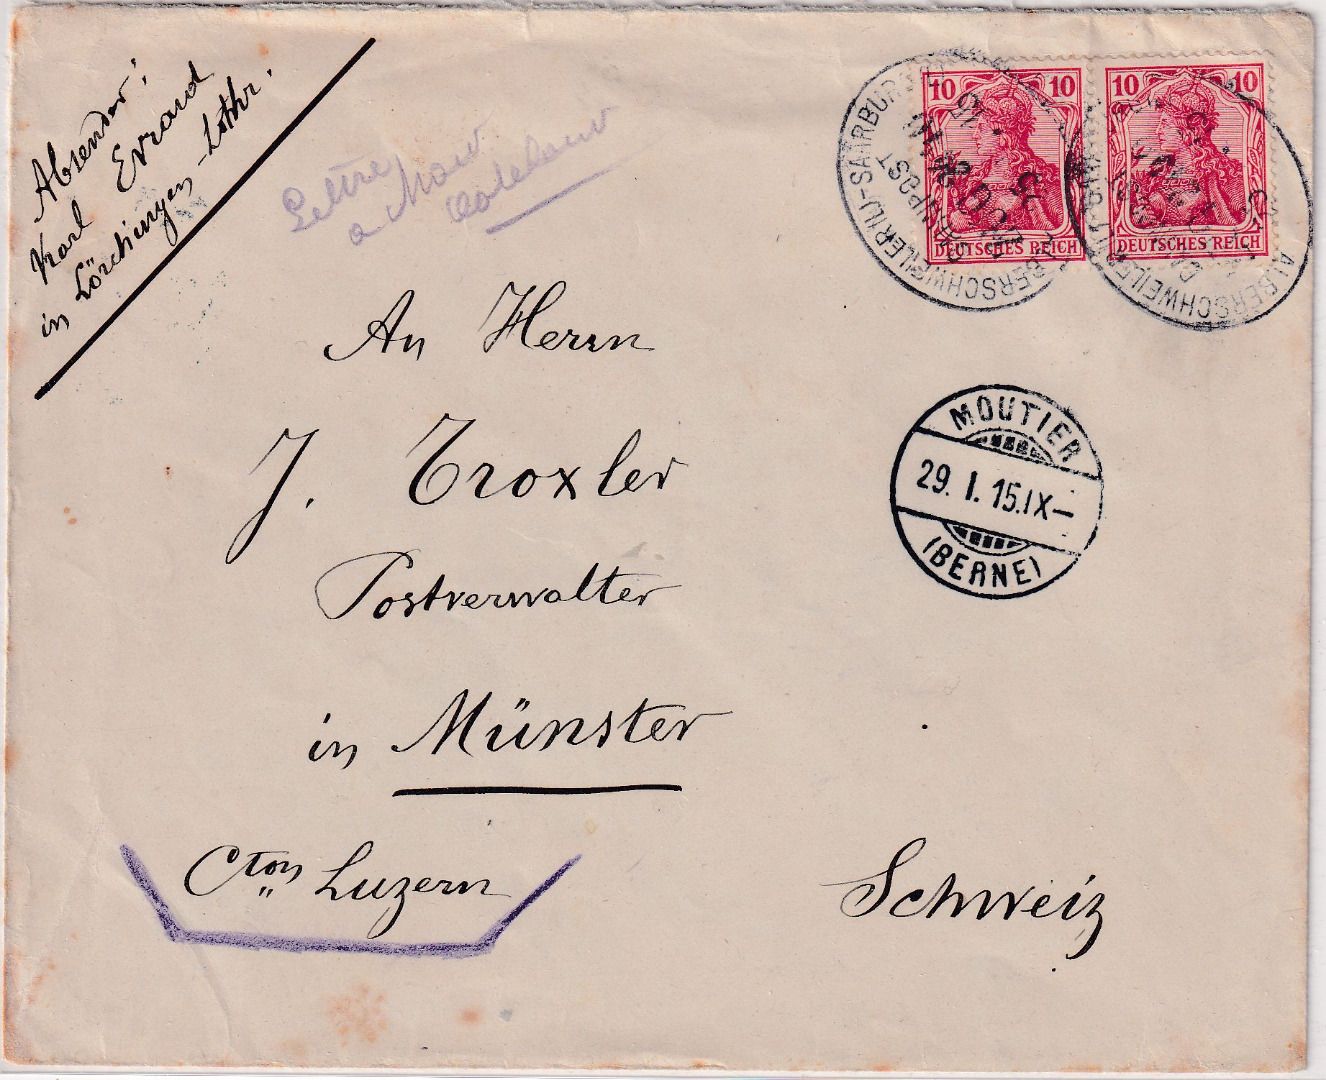 Absender:
Karl Evrard
in Lörchingen Lothr.
Lettre
a
10 10
DEUTSCHES REICH
10 10
DEUTSCHES REICH
ALBERSCHWEILER
SAARBURG
BAHNPOST
ALBERSCHWEILER
An Herrn
J. Troxler
Postverwalter
in Münster
Cton Luzern
Schweiz
MOUTIER
29. I. 15. IX–
(BERNE)